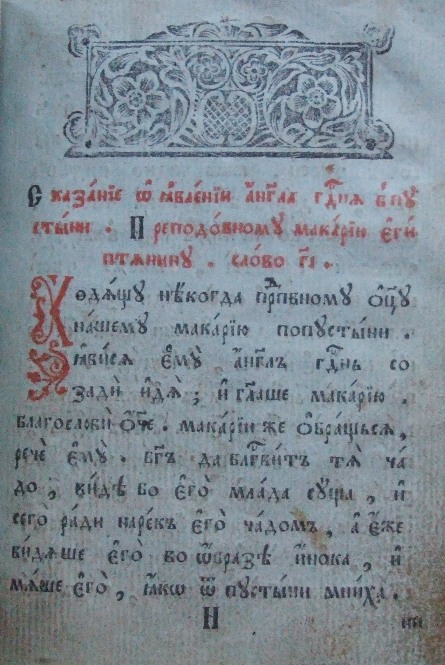 Сказа́нїе ѡ҆ ꙗ҆вле́нїи а҆́нг҃ла гдⷭ҇ня в пу
сты́ни . Преподо́вному мака́рїю є҆гѝ
птянину . сло́во г҃і .
Ходя́щу нѣ́когда прⷣпбному ѻ҆ц҃у
на́шему мака́рїю попусты́ни .
ꙗ҆ви́ся є҆мꙋ̀ а҆́нг҃лъ гдⷭ҇нь со
зади̂ и҆дѧ̀ ; и҆ гл҃аше мака́рїю .
благослови̂ ѻ҆́ч҃е . мака́рїи же ѻ҆бра́щься ,
рече̂ є҆мꙋ̀ . бг҃ъ да бл҃гⷭ҇вит тя̀ ча́
до , ви́дѣ бо є҆го̀ млада су́щы , и҆
сего̀ ра́ди наре́къ є҆го̀ ча́домъ , а҆ є҆́же
ви́дяше є҆го̀ во ѡ҆́бразѣ и҆́нока , и҆
мя́ше є҆го̀ , ꙗ҆́кѡ ѿ пусты́ни мни́ха .
И